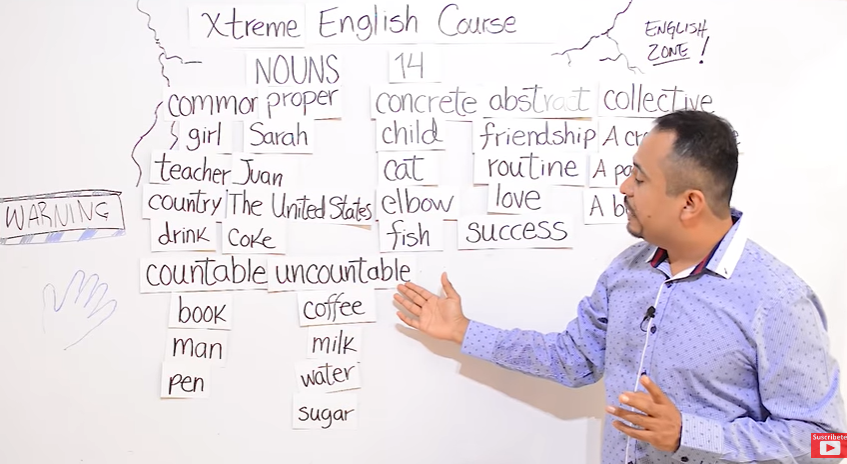 Xtreme English Course
ENGLISH
ZONE!
NOUNS 14
common proper concrete abstract collective
girl Sarah child friendship A
teacher Juan cat routine A
country The United States elbow love A
drink Coke fish success
WARNING
countable uncountable
book coffee
man milk
pen water
sugar
Suscribete